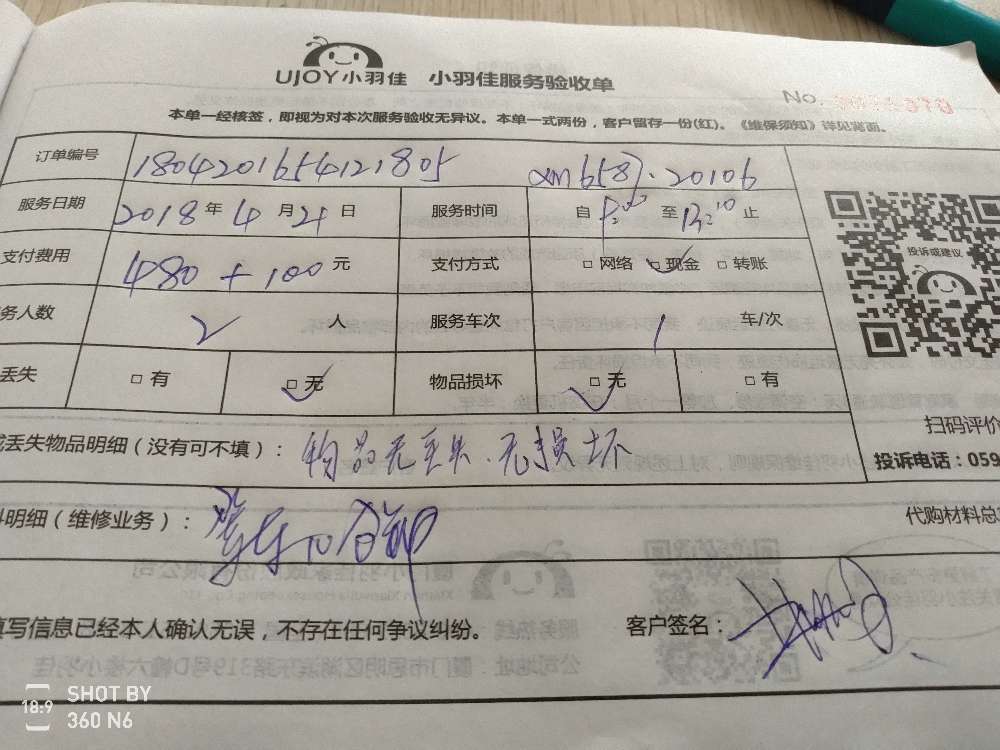 UJOY小羽佳 小羽佳服务验收单
No.
本单一经核签，即视为对本次服务验收无异议。本单一式两份，客户留存一份(红)。《维保须知》详见背面。
订单编号 1804201654121805
服务日期 2018年4月21日 服务时间 自 至 止
支付费用 480+100元 支付方式 □网络 □现金 □转账
务人数 2人 服务车次 1 车/次
丢失 □有 □无 物品损坏 □无 □有
投诉或建议
扫码评价
投诉电话：059
或丢失物品明细（没有可不填）：物品无丢失、无损坏
料明细（维修业务）：
代购材料总
填写信息已经本人确认无误，不存在任何争议纠纷。
客户签名：
18:9 SHOT BY
360 N6